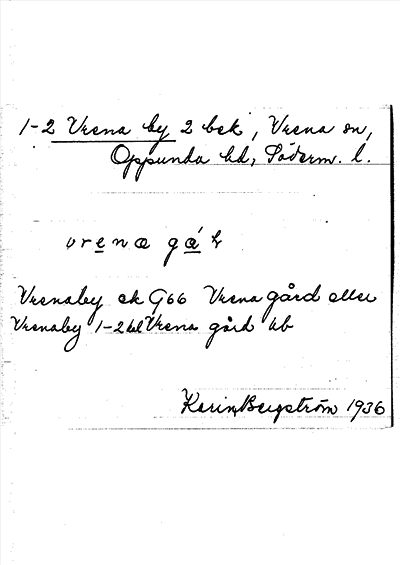 1-2 Vrena by 2 bek, Vrena sn,
Oppunda hd, Söderm. l.
vrena gå
Vrenaby ek G66 Vrena gård eller
Vrenaby 1-2 kl Vrena gård kb
Karin Bergström 1936